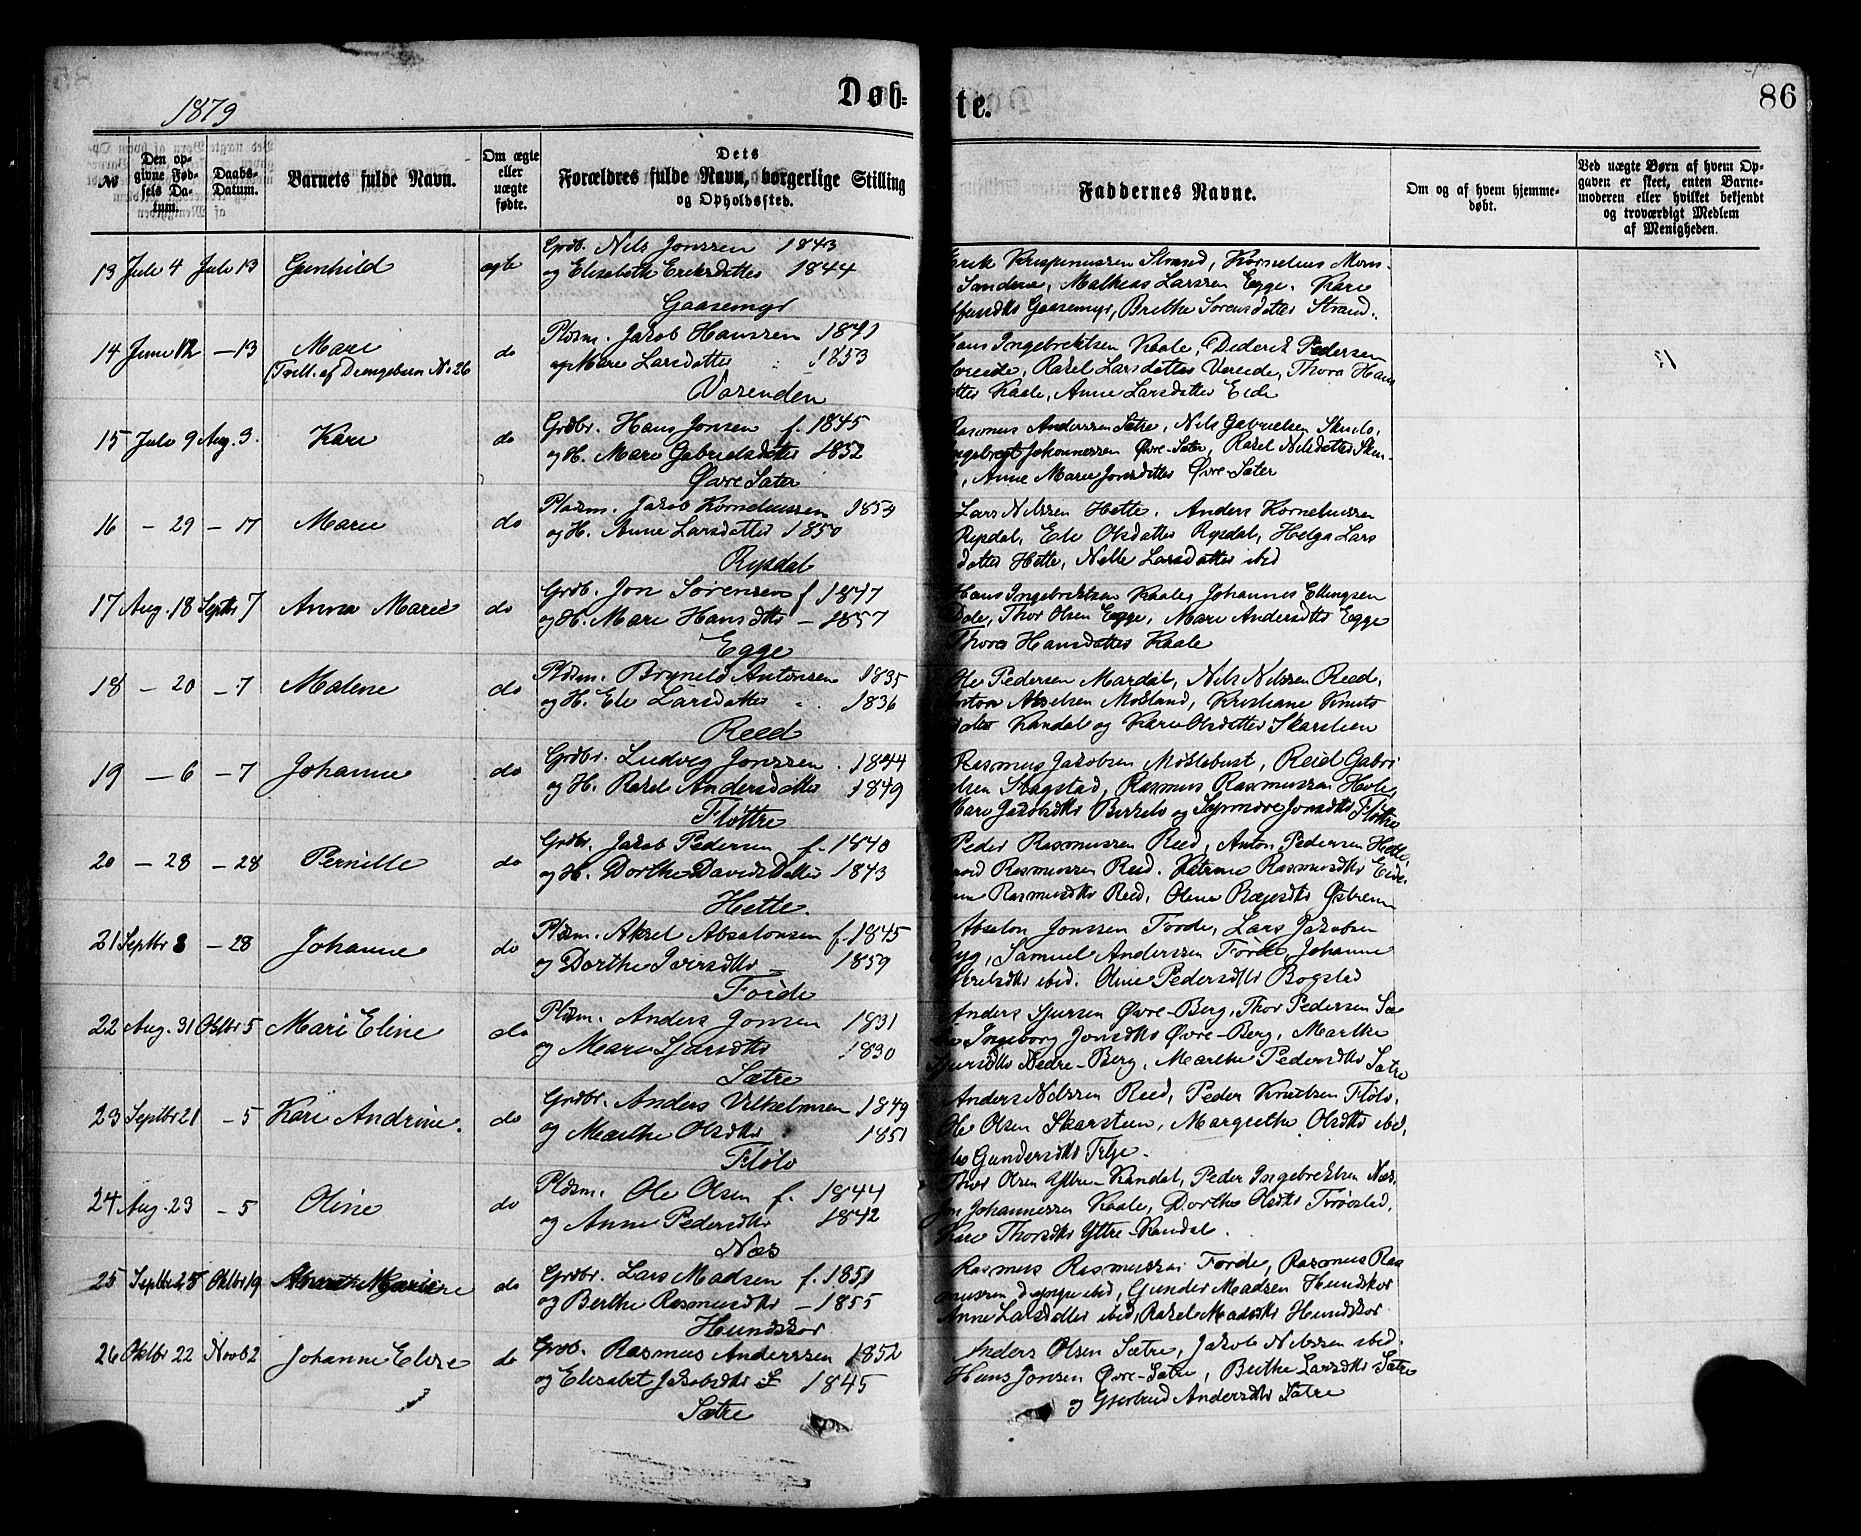 1879
Døb=
te.
86
No
Den op-
givne Fød-
sels Da-
tum.
Daabs-
Datum.
Barnets fulde Navn.
Om ægte
eller
uægte
fødte.
Dets
Forældres fulde Navn, borgerlige Stilling
og Opholdssted.
Faddernes Navne.
Om og af hvem hjemme-
døbt.
Ved uægte Børn af hvem Op-
gaven er skeet, enten Barne-
moderen eller hvilket bekjendt
og troværdigt Medlem
af Menigheden.
13 Juli 4 Juli 13 Gunhild ægte Grdb. Nils Jonssen 1843
og Elisabeth Eriksdatter 1844
Gaasemyr
Krispinussen Strand, Kornelius Mons-
Sandene, Mathias Larssen Egge. Kari
Gaasemyr, Brithe Sørensdatter Strand.
14 Juni 12 – 13 Mari do Pldsm. Jakob Hanssen 1841
(Tvill. af Drengebarn No 26 og Mari Larsdatter 1853
Vereiden
Ingebrektsen Kaale, Diderik Pedersen
Rakel Larsdatter Vereide, Thora Hans
Kaale, Anne Larsdatter Eide
15 Juli 9 Aug. 3. Kari do Grdbr. Hans Jonsen f. 1845
og H. Mari Gabrielsdatter 1852
Øvre Sæter
Rasmus Anderssen Sætre, Nils Gabrielsen
Johannessen Øvre-Sæter, Rakel Nilsdatter
Anne Marie Jonsdatter Øvre-Sæter
16 – 29 – 17 Mari do Pladsm. Jakob Korneliussen 1854
og H. Anne Larsdatter 1850
Rypdal
Lars Nilssen Hette. Anders Korneliussen
Rypdal, Eli Olsdatter Rypdal, Helga Lars
datter Hette, Nille Larsdatter ibid
17 Aug. 18 Septbr 7 Anna Marie do Grdb. Jon Sørensen f 1847
og H. Mari Hansdtr – 1857
Egge
Hans Ingebrektsen Kaale, Johannes Ellingsen
Dale, Thor Olsen Egge, Mari Andersdtr Egge
Thora Hansdatter Kaale
18 – 20 – 7 Malene do Pldsm. Brynild Antonsen 1835
og H. Eli Larsdatter 1836
Reed
Ole Pedersen Mardal, Nils Nilssen Reed,
Akselsen Mokland, Kristiane Knuts
datter Kandal og Kari Olsdatter Skarsteen
19 – 6 – 7 Johanne do Grdbr. Ludvig Jonssen 1844
og H. Rakel Andersdatter 1849
Fløttre
Rasmus Jakobsen Moklebust, Reid Gabri
elsen Stagstad, Rasmus Rasmussen
Mari Jakobsdtr Birkelo og Synnøve Jonsdtr Fløttre
20 – 28 – 28 Pernille do Grdbr. Jakob Pedersen f. 1840
og H. Dorthe Davidsdatter 1843
Hette.
Peder Rasmussen Reed, Anton Pedersen Hette
Rasmussen Reed. Katrine Rasmusdtr Eide
Rasmusdtr Reed, Oline Bøgesdtr
21 Septbr 8 – 28 Johanne do Pldsm. Aksel Absalonsen f. 1845
og Dorthe Iversdtr 1859
Førde
Absalon Jonssen Førde, Lars Jakobsen
Samuel Anderssen Førde, Johanne
ibid. Oline Pedersdtr Bogstad
22 Aug. 31 Oktbr 5 Mari Eline do Pldsm. Anders Jonsen 1831
og Mari Sjursdtr 1830
Sætre
Anders Sjursen Øvre-Berg, Thor Pedersen Sæ
tre Ingeborg Jonsdtr Øvre-Berg, Marthe
Sjursdtr Nedre-Berg, Marthe Pedersdtr Sætre
23 Septbr 21 – 5 Kari Andrine. do Grdbr. Anders Vilhelmsen 1849
og Marthe Olsdtr 1851
Fløle
Anders Nilssen Reed, Peder Knutsen Fløle,
Ole Olsen Skarsteen, Margrethe Olsdtr ibd,
Gundersdtr
24 Aug. 23 – 5 Oline do Pldsm. Ole Olsen f. 1844
og Anne Pedersdtr 1842
Næs
Thor Olsen Yttre Kandal, Peder Ingebrektsen Næs.
Johannessen Kaale, Dorthe Olsdtr
Kari Thorsdtr Yttre-Kandal.
25 Septbr 25 Oktbr 19 do Grdbr. Lars Madsen f. 1851
og Berthe Rasmusdtr – 1855
Hundskor
Rasmus Rasmussen Førde, Rasmus Ras
mussen ibid, Gunder Madsen Hundskor
Anne Larsdatter ibid, Rakel Madsdtr Hundskor
26 Oktbr 22 Novb 2 Johanne do Grdb. Rasmus Anderssen 1852
og Elisabet Jakobsdtr 1845
Sætre
Anders Olsen Sætre, Jakob Nilssen ibid.
Hans Jonsen Øvre-Sætre, Brithe Larsdtr Sætre
og Gjertrud Andersdtr Sætre